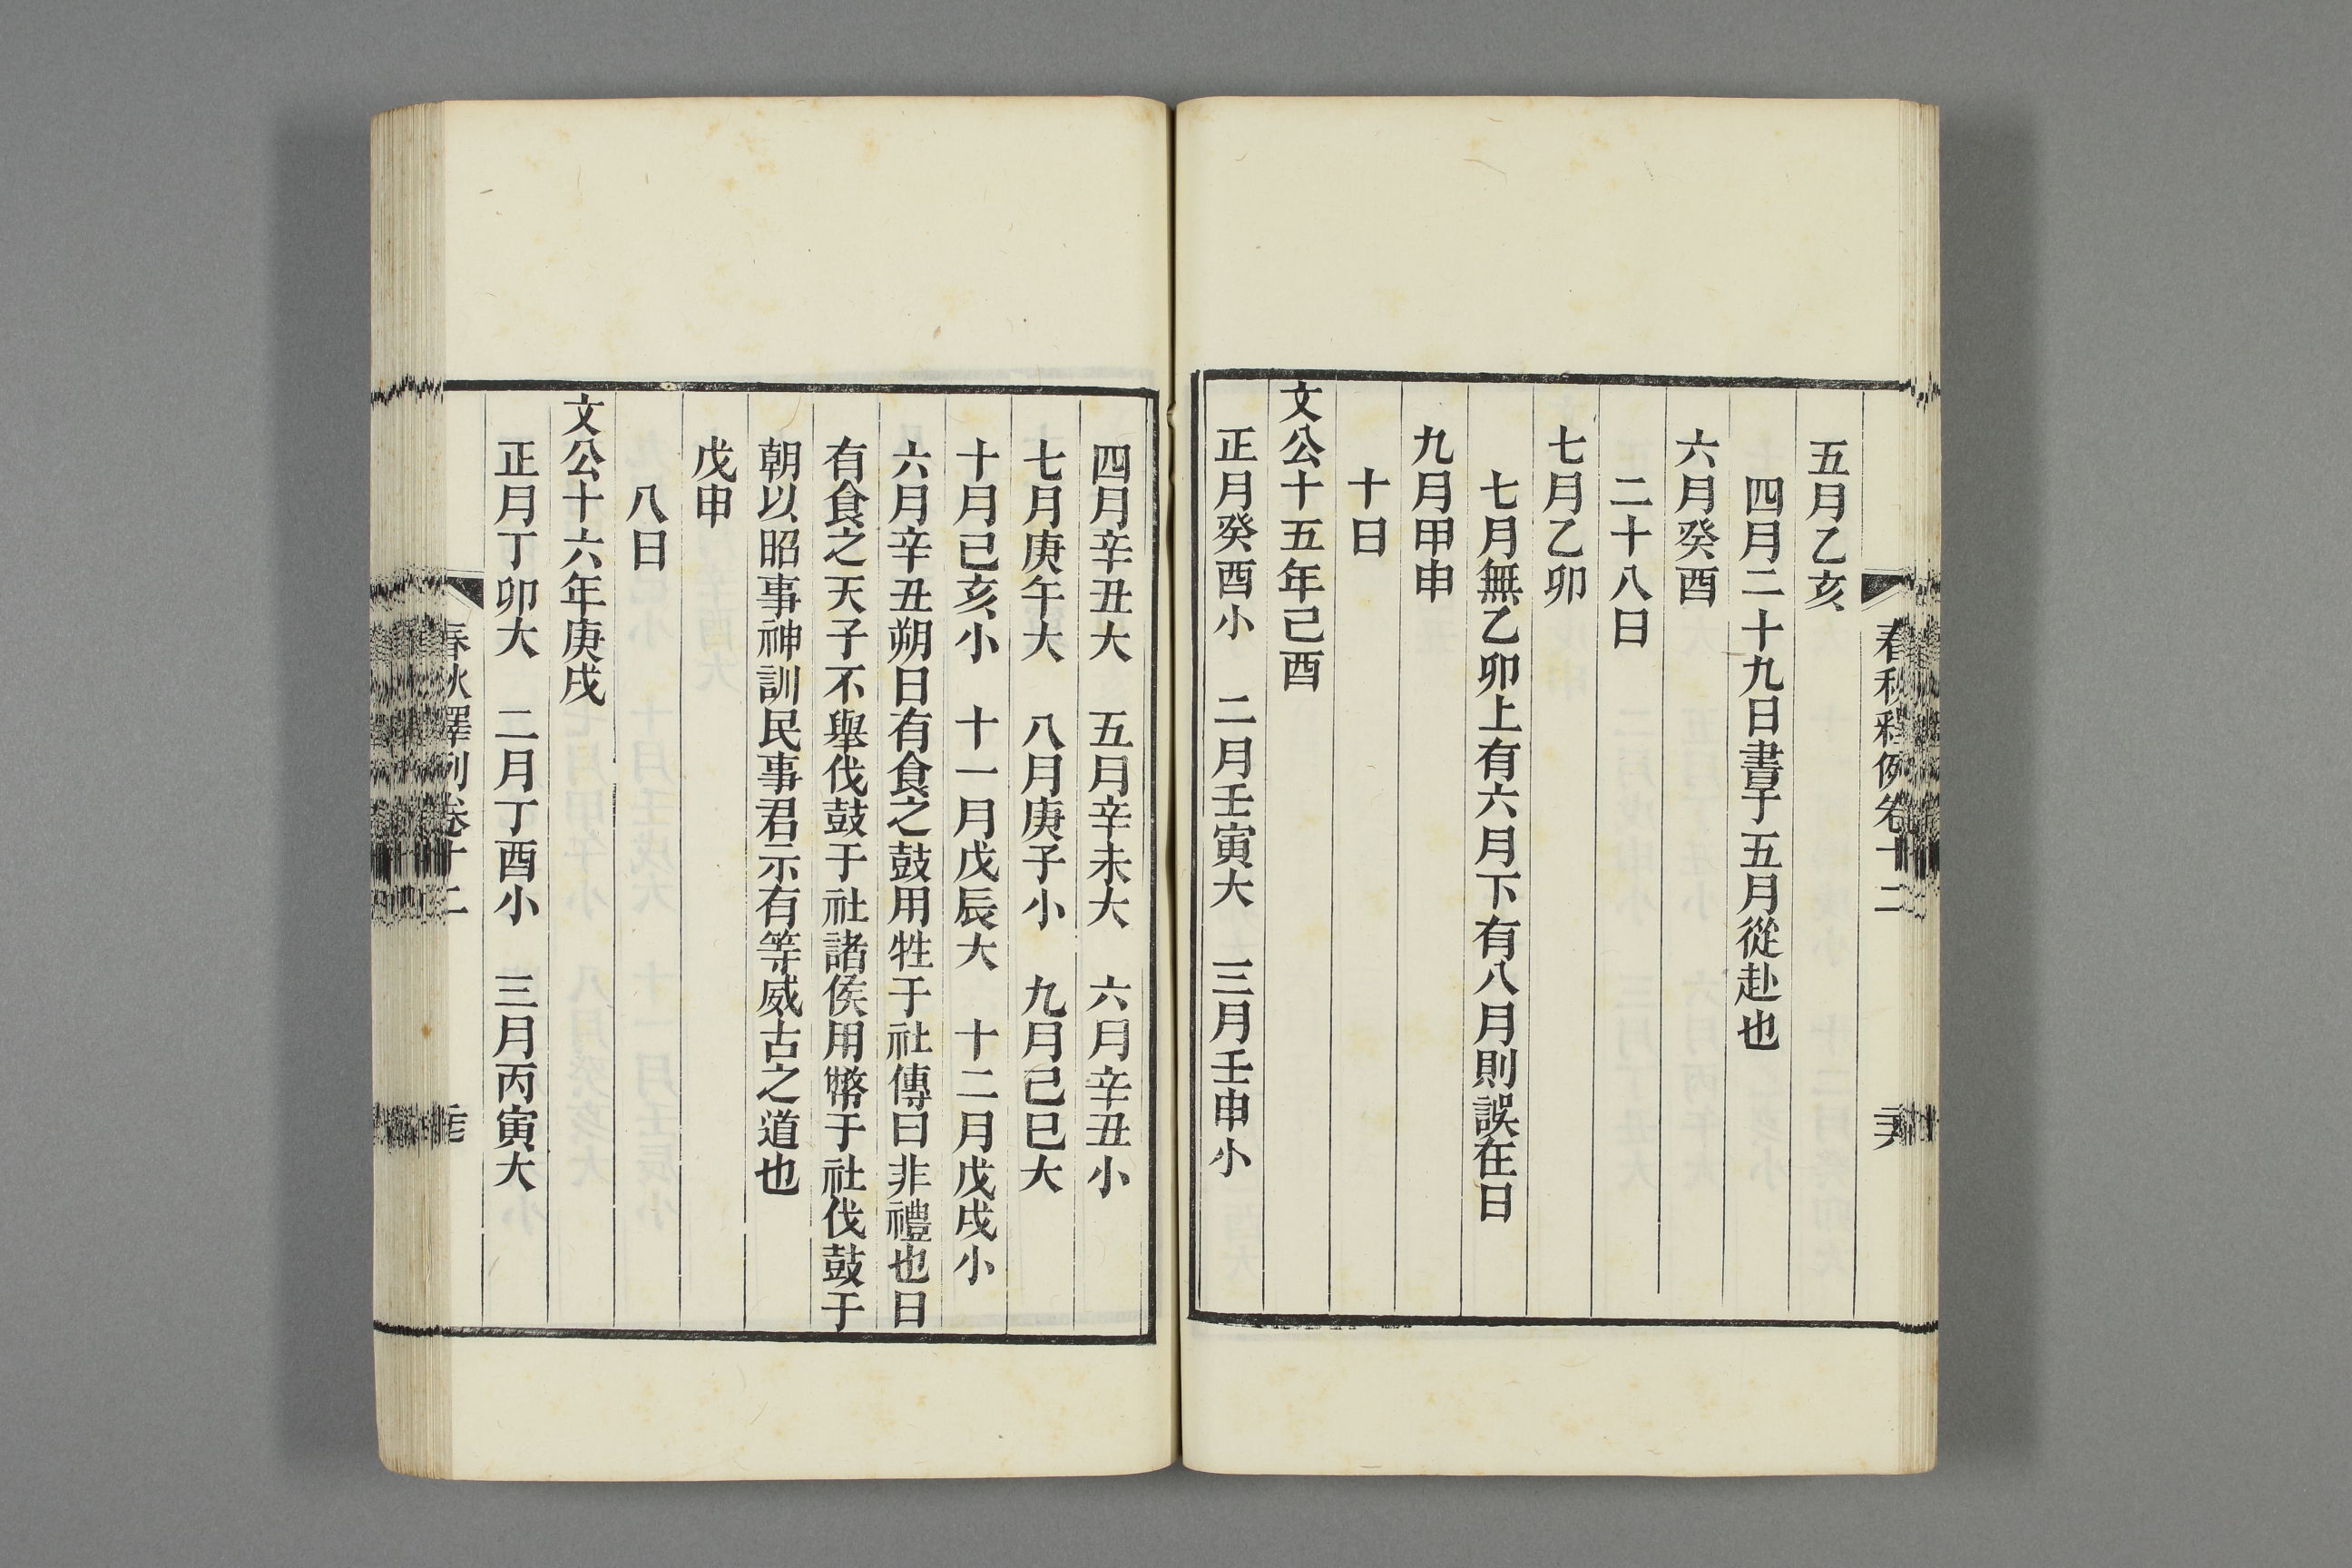 春秋釋例卷十二
五月乙亥
四月二十九日書于五月從赴也
六月癸酉
二十八日
七月乙卯
七月無乙卯上有六月下有八月則誤在日
九月甲申
十日
文公十五年己酉
正月癸酉小　二月壬寅大　三月壬申小
四月辛丑大　五月辛未大　六月辛丑小
七月庚午大　八月庚子小　九月己巳大
十月己亥小　十一月戊辰大　十二月戊戌小
六月辛丑朔日有食之鼓用牲于社傳曰非禮也日
有食之天子不舉伐鼓于社諸侯用幣于社伐鼓于
朝以昭事神訓民事君示有等威古之道也
戊申
八日
文公十六年庚戌
正月丁卯大　二月丁酉小　三月丙寅大
春秋釋例卷十二